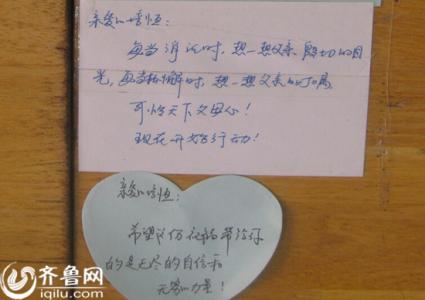 亲爱的培恒：
每当消沉时，想一想父亲殷切的目
光，每当松懈时，想一想父亲的叮嘱
可怜天下父母心！
现在开始行动！
亲爱的培恒：
希望这份祝福带给你
的是无尽的自信和
无穷力量！
齐鲁网
iqilu.com